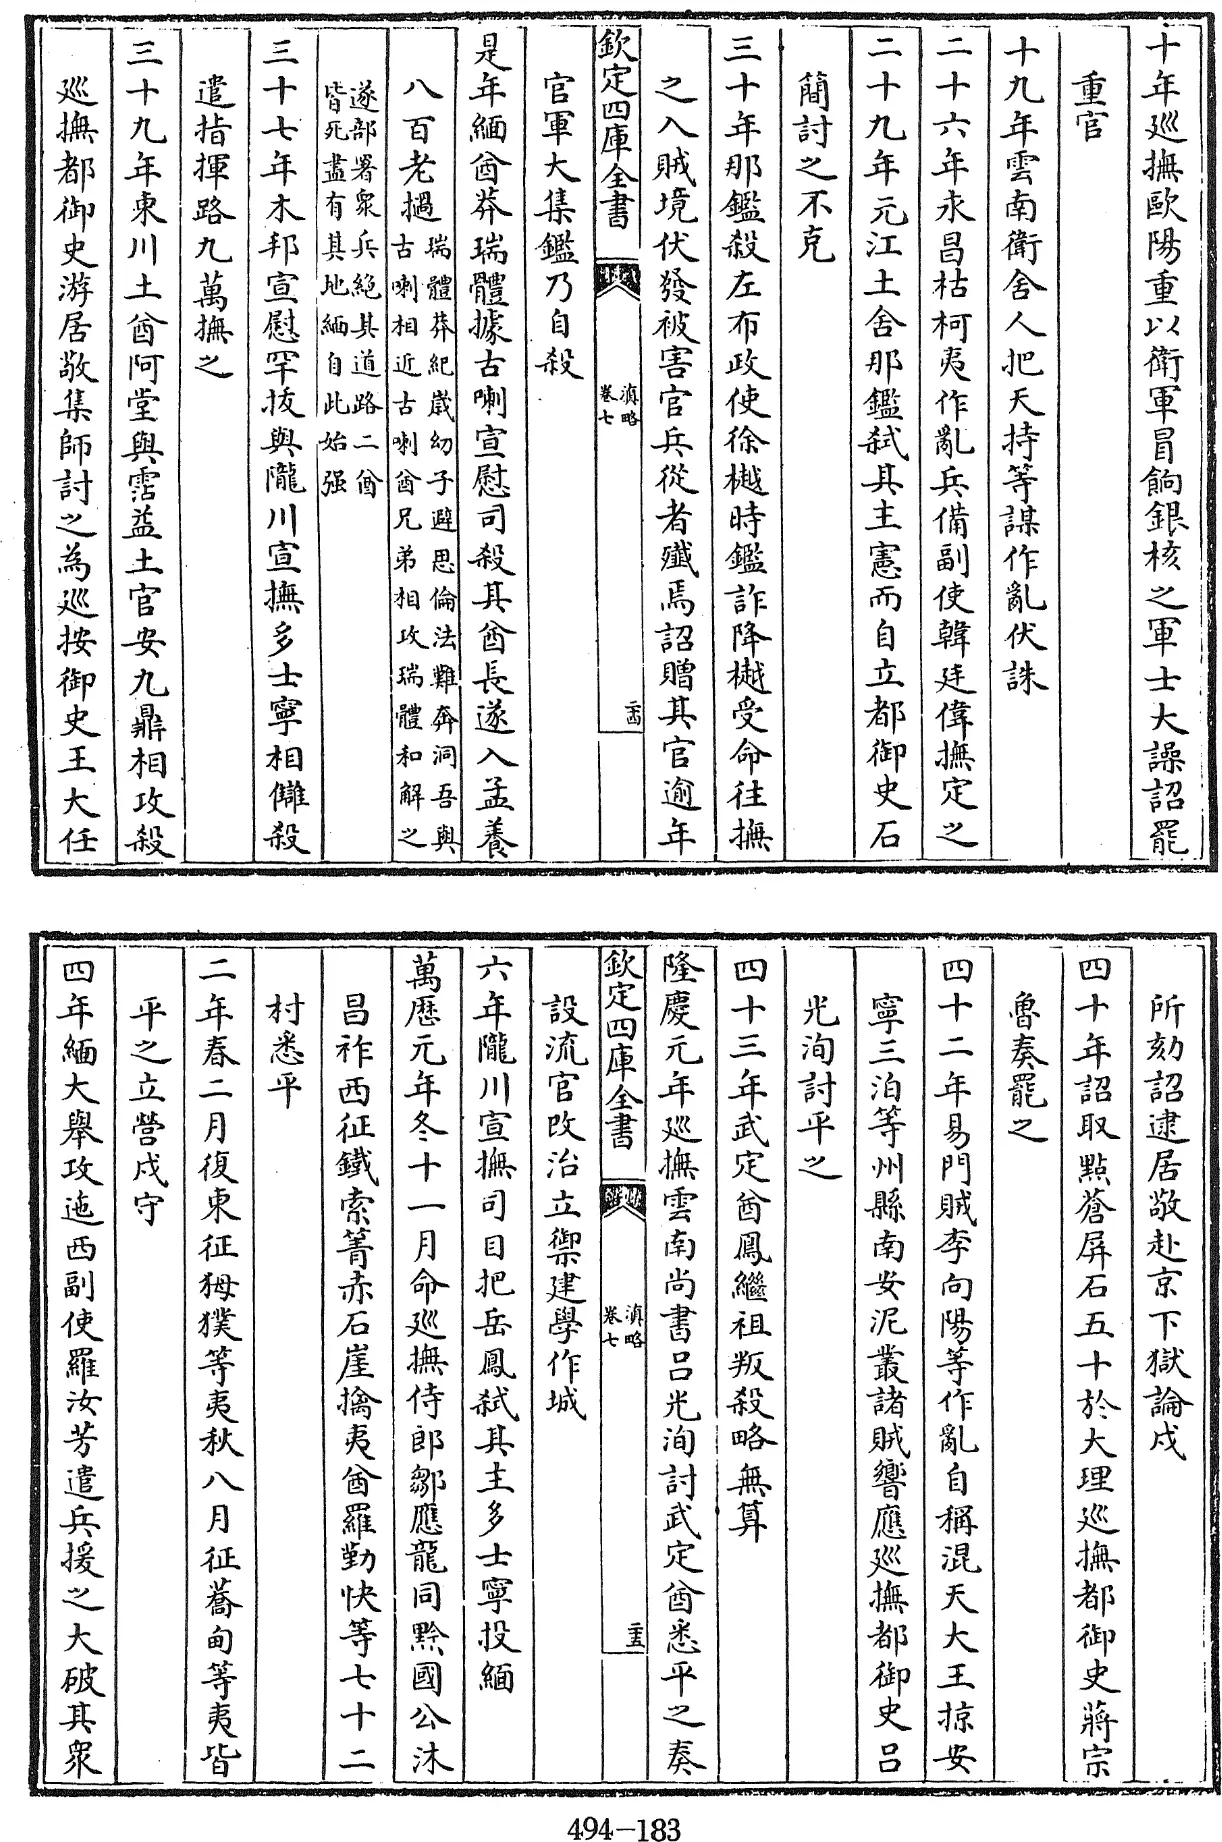 十年巡撫歐陽重以衛軍冒餉銀核之軍士大譟詔罷
重官
十九年雲南衛舍人把天持等謀作亂伏誅
二十六年永昌枯柯夷作亂兵備副使韓廷偉撫定之
二十九年元江土舍那鑑弑其主憲而自立都御史石
簡討之不克
三十年那鑑殺左布政使徐樾時鑑詐降樾受命往撫
之入賊境伏發被害官兵從者殲焉詔贈其官逾年
欽定四庫全書
滇略
卷七
二十四
官軍大集鑑乃自殺
是年緬酋莽瑞體據古喇宣慰司殺其酋長遂入孟養
八百老撾
瑞體莽紀歲幼子避思倫法難奔洞吾與
古喇相近古喇酋兄弟相攻瑞體和解之
遂部署衆兵絶其道路二酋
皆死盡有其地緬自此始强
三十七年木邦宣慰罕拔與隴川宣撫多士寧相讎殺
遣指揮路九萬撫之
三十九年東川土酋阿堂與霑益土官安九鼎相攻殺
巡撫都御史游居敬集師討之為巡按御史王大任
所劾詔逮居敬赴京下獄論戍
四十年詔取點蒼屏石五十於大理巡撫都御史蔣宗
魯奏罷之
四十二年易門賊李向陽等作亂自稱混天大王掠安
寧三泊等州縣南安泥叢諸賊響應巡撫都御史呂
光洵討平之
四十三年武定酋鳳繼祖叛殺略無算
隆慶元年巡撫雲南尚書呂光洵討武定酋悉平之奏
欽定四庫全書
滇略
卷七
二十五
設流官改治立禦建學作城
六年隴川宣撫司目把岳鳳弑其主多士寧投緬
萬歷元年冬十一月命巡撫侍郎鄒應龍同黔國公沐
昌祚西征鐵索箐赤石崖擒夷酋羅勤快等七十二
村悉平
二年春二月復東征㺟獛等夷秋八月征蕎甸等夷皆
平之立營戍守
四年緬大舉攻迤西副使羅汝芳遣兵援之大破其衆
494-183